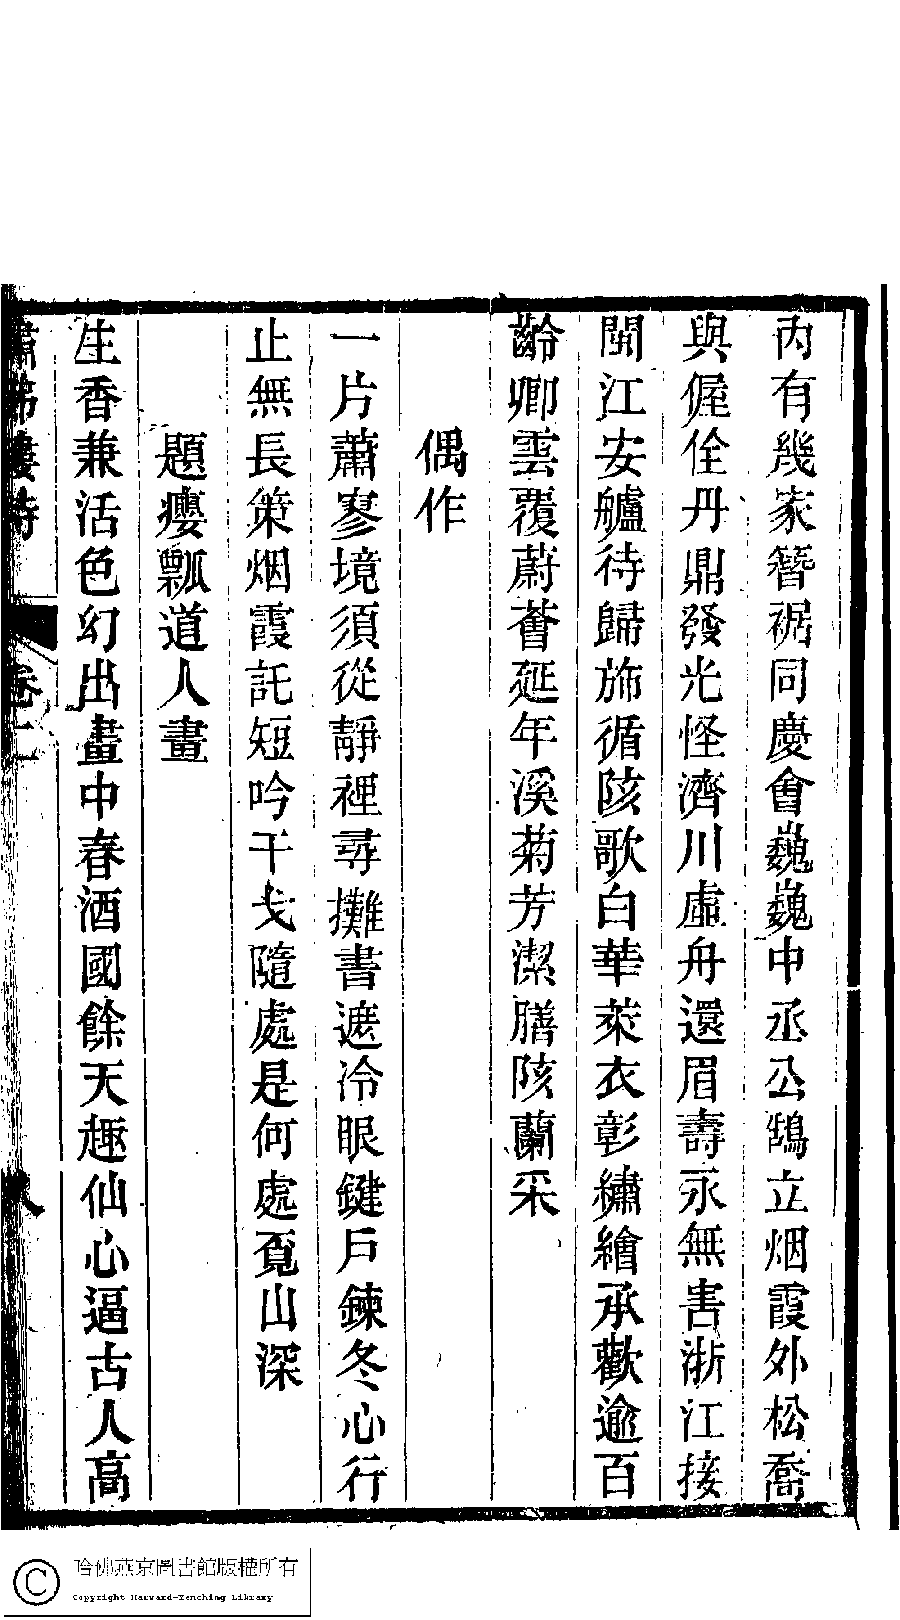 內有幾家簪裾同慶會巍巍中丞公鵠立烟霞外松喬
與偓佺丹鼎發光怪濟川虛舟還眉壽永無害浙江接
閩江安艫待歸斾循陔歌白華萊衣彰繡繪承歡逾百
齡卿雲覆蔚薈延年溪菊芳潔膳陔蘭采
偶作
一片蕭寥境須從靜裡尋攤書遮冷眼鍵戶鍊冬心行
止無長策烟霞託短吟干戈隨處是何處覓山深
題癭瓢道人畫
生香兼活色幻出畫中春酒國餘天趣仙心逼古人高
卷二
八
哈佛燕京圖書館版權所有
Copyright Harvard-Yenching Library